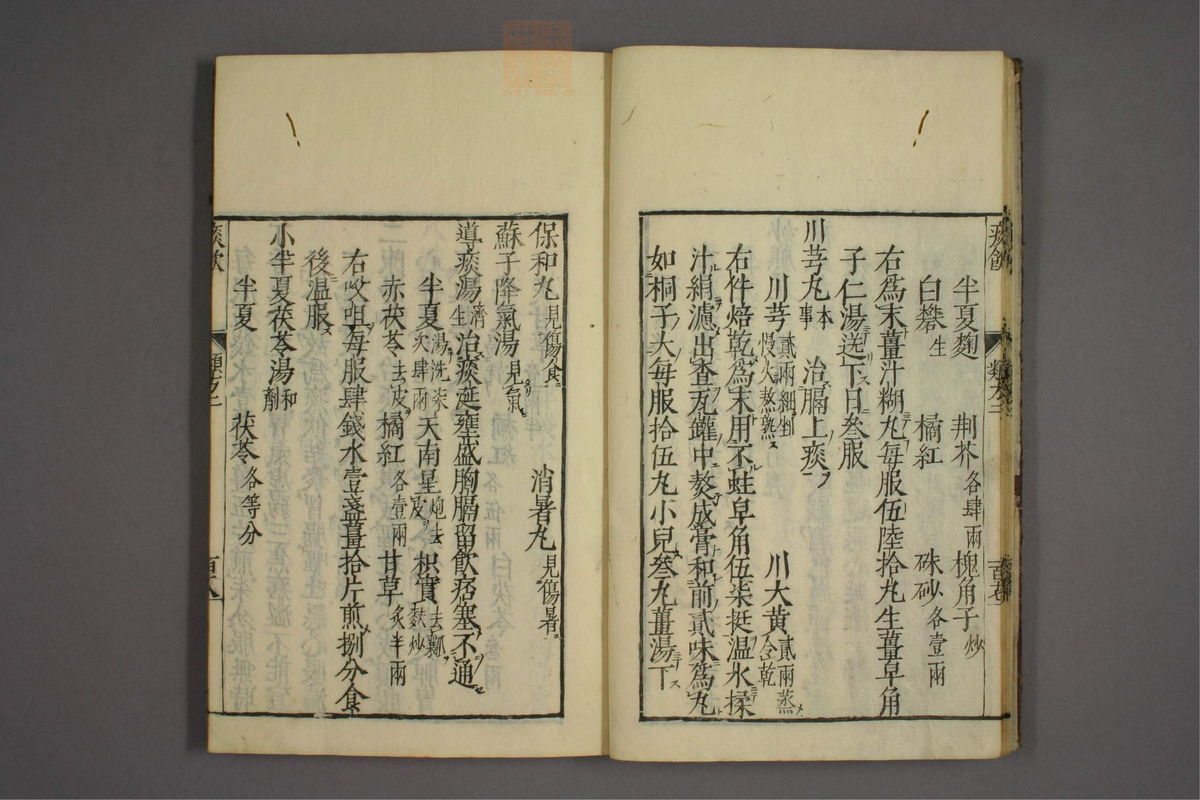 痰飲
半夏麴 荆芥各肆兩 槐角子炒
白礬生 橘紅 硃砂各壹兩
右爲末薑汁糊丸每服伍陸拾丸生薑皁角
子仁湯送下日叁服
川芎丸本事 治膈上痰
川芎貳兩細剉慢火熬熟 川大黃貳兩蒸令乾
右件焙乾爲末用不蛀皁角伍柒挺温水揉
汁絹濾出查瓦鑵中熬成膏和前貳味爲丸
如桐子大每服拾伍丸小兒叁丸薑湯下
保和丸見傷食 消暑丸見傷暑
蘇子降氣湯見氣
導痰湯濟生 治痰涎壅盛胸膈留飲痞塞不通
半夏湯洗柒次肆兩 天南星炮去皮 枳實去瓤麩炒
赤茯苓去皮 橘紅各壹兩 甘草炙半兩
右㕮咀每服肆錢水壹盞薑拾片煎捌分食
後温服
小半夏茯苓湯和劑
半夏 茯苓各等分
痰飲